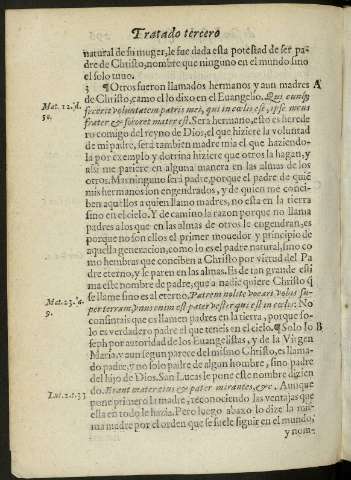 Tratado tercero
natural de su muger, le fue dada esta potestad de ser pa-
dre de Christo, nombre que ninguno en el mundo sino
el solo tuuo.
3 ¶ Otros fueron llamados hermanos y aun madres A
de Christo, como el lo dixo en el Euangelio. Qui cunq;
Mat. 12. d.
fecerit voluntatem patris mei, qui in cœlis est, ipse meus
50.
frater & soror et mater est. Sera hermano, esto es herede
ro comigo del reyno de Dios, el que hiziere la voluntad
de mi padre, sera tambien madre mia el que haziendo-
la por exemplo y dotrina hiziere que otros la hagan, y
assi me pariere en alguna manera en las almas de los
otros. Mas ninguno sera padre, porque el padre de quiē
mis hermanos son engendrados, y de quien me conci-
ben aquellos a quien llamo madres, no esta en la tierra
sino en el cielo. Y de camino la razon porque no llama
padres a los que en las almas de otros le engendran, es
porque no son ellos el primer mouedor y principio de
aquella generacion, como lo es el padre natural, sino co
mo hembras que conciben a Christo por virtud del Pa
dre eterno, y le paren en las almas. Es de tan grande esti
ma este nombre de padre, que a nadie quiere Christo q̄
se llame sino es al eterno. Patrem nolite vocari vobis su-
Mat. 23. a.
per terram, vnus enim est pater vester qui est in cœlis. No
9.
consintais que os llamen padres en la tierra, porque so-
lo es verdadero padre el que teneis en el cielo. ¶ Solo Io B
seph por autoridad de los Euangelistas, y de la Virgen
Maria, y aun segun parece del mismo Christo, es llama-
do padre, y no solo padre de algun hombre, sino padre
del hijo de Dios. San Lucas le pone este nombre dizien
do. Erant mater eius & pater mirantes, &c. Aunque
Luc. 2. c. 33
pone primero la madre, reconociendo las ventajas que
esta en todo le hazia. Pero luego abaxo lo dize la mis-
ma madre por el orden que se suele seguir en el mundo,
y nom-